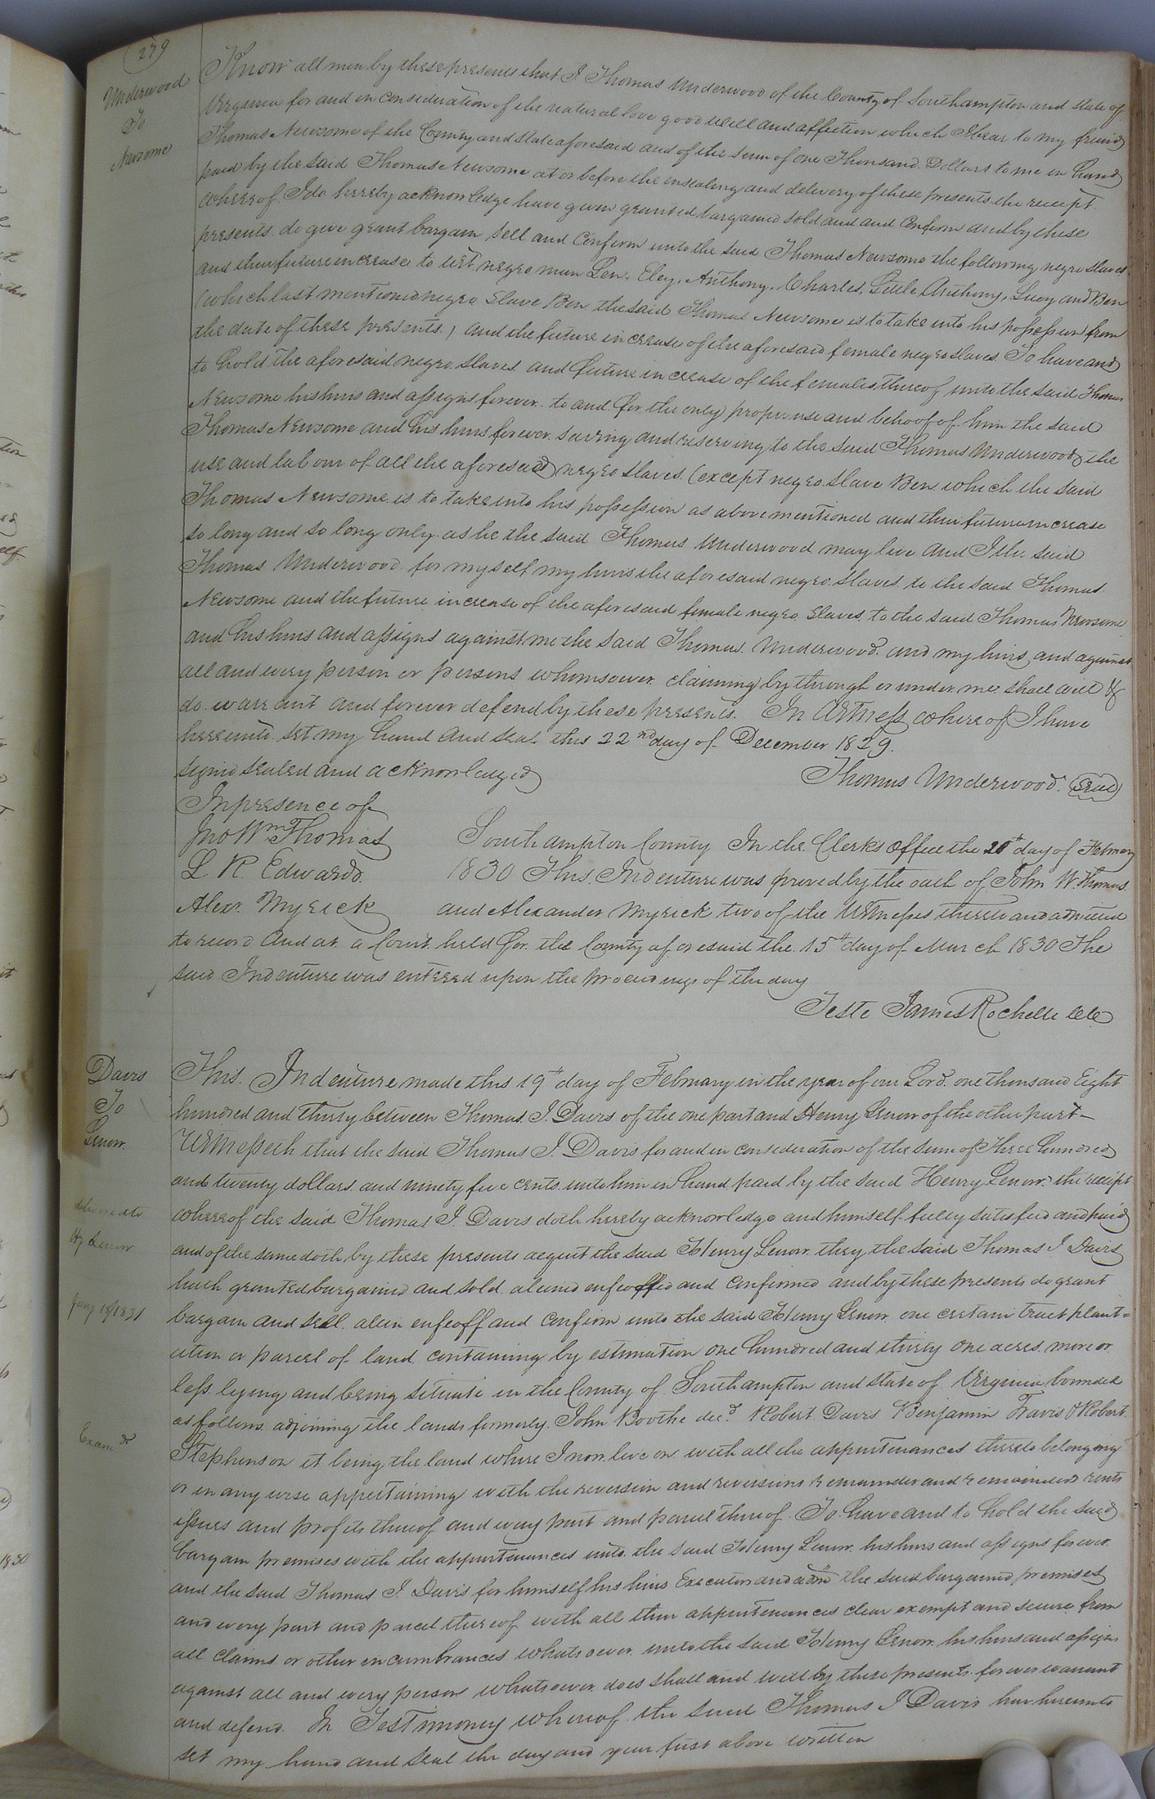 279
Underwood
To
Newsome
Know all men by these presents that I Thomas Underwood of the County of Southampton and state of
Virginia for and in consideration of the natural love good will and affection which I bear to my friend
Thomas Newsome of the County and state aforesaid and of the sum of one Thousand Dollars to me in hand
paid by the said Thomas Newsome at or before the ensealing and delivery of these presents the receipt
whereof I do hereby acknowledge have given granted bargained sold and and Confirm and by these
presents do give grant bargain sell and Confirm unto the said Thomas Newsome the following negro slaves
and their future increase to wit negro man Len. Eley, Anthony, Charles, Little Anthony, Lucy and Ben
(which last mentioned negro slave Ben the said Thomas Newsome is to take into his possession from
the date of these presents) and the future increase of the aforesaid female negro slaves To have and
to hold the aforesaid negro slaves and future increase of the females thereof unto the said Thomas
Newsome his heirs and assigns forever to and for the only proper use and behoof of him the said
Thomas Newsome and his heirs forever saving and reserving to the said Thomas Underwood the
use and labour of all the aforesaid negro slaves (except negro slave Ben which the said
Thomas Newsome is to take into his possession as above mentioned and their future increase
so long and so long only as he the said Thomas Underwood may live and I the said
Thomas Underwood for myself my heirs the aforesaid negro slaves to the said Thomas
Newsome and the future increase of the aforesaid female negro slaves to the said Thomas Newsome
and his heirs and assigns against me the said Thomas Underwood and my heirs and against
all and every person or persons whomsoever claiming by through or under me shall will &
do warrant and forever defend by these presents. In Witness whereof I have
hereunto set my hand and seal this 22nd day of December 1829.
Signed sealed and acknowledged
Thomas Underwood (Seal)
In presence of
Jno Wm Thomas
L R Edwards
Alexr. Myrick
Southampton County In the Clerks office the 20th day of February
1830 This Indenture was proved by the oath of John W. Thomas
and Alexander Myrick two of the Witnesses thereto and admitted
to record And at a Court held for the County aforesaid the 15th day of March 1830 The
said Indenture was entered upon the proceedings of the day
Teste James Rochelle
Davis
To
Lenow.
Hy Lenow
Jany 18 1831
Examd
This Indenture made this 19th day of February in the year of our Lord one thousand Eight
hundred and thirty between Thomas J. Davis of the one part and Henry Lenow of the other part –
Witnesseth that the said Thomas J. Davis for and in consideration of the sum of Three hundred
and twenty dollars and ninety five cents unto him in hand paid by the said Henry Lenow the receipt
whereof the said Thomas J. Davis doth hereby acknowledge and himself fully satisfied and paid
and of the same doth by these presents acquit the said Henry Lenow they the said Thomas J Davis
hath granted bargained and sold aliened enfeoffed and Confirmed and by these presents do grant
bargain and sell alien enfeoff and Confirm unto the said Henry Lenow one certain tract plant-
ation or parcel of land containing by estimation one hundred and thirty one acres more or
less lying and being situate in the County of Southampton and state of Virginia bounded
as follows adjoining the lands formerly John Boothe decd Robert Davis Benjamin Travis & Robert
Stephenson it being the land where I now live on with all the appurtenances thereto belonging
or in any wise appertaining with the reversion and reversions remainder and remainders rents
issues and profits thereof and every part and parcel thereof To have and to hold the said
bargain premises with the appurtenances unto the said Henry Lenow his heirs and assigns forever
and the said Thomas J Davis for himself his heirs Executors and admr the said bargained premises
and every part and parcel thereof with all their appurtenances clear exempt and secure from
all claims or other encumbrances whatsoever unto the said Henry Lenow his heirs and assigns
against all and every person whatsoever does shall and will by these presents forever warrant
and defend In Testimoney whereof the said Thomas J Davis has hereunto
set my hand and seal the day and year first above written